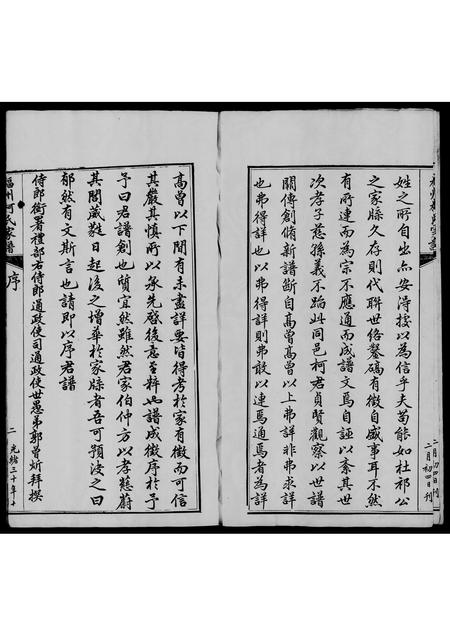 姓之所自出亦安得援以為信乎夫苟能如杜祁公
之家牒久存則代聯世絡鑿礭有徵自盛事耳不然
有所連而為宗不應通而成譜文焉自誣以紊其世
次孝子慈孫義不蹈此同邑柯君貞賢觀察以世譜
闕傳創脩新譜斷自高曾高曾以上弗詳非弗求詳
也弗得詳也弗得詳則弗敢以連焉通焉者為詳
二月初四日刊
高曾以下閒有未盡詳要皆得考於家有徵而可信
其嚴其慎所以承先啓後意至粹也譜成徵序於予
予曰君譜創也質宜然雖然君家伯仲方以孝慈蔚
其閥蕆鞋日起後之增華於家牒者吾可預決之曰
郁然有文斯言也請即以序君譜
侍郎銜署禮部右侍郎通政使司通政使世愚弟郭曾炘拜撰
福州柯氏家譜
序
二
光緒三十年